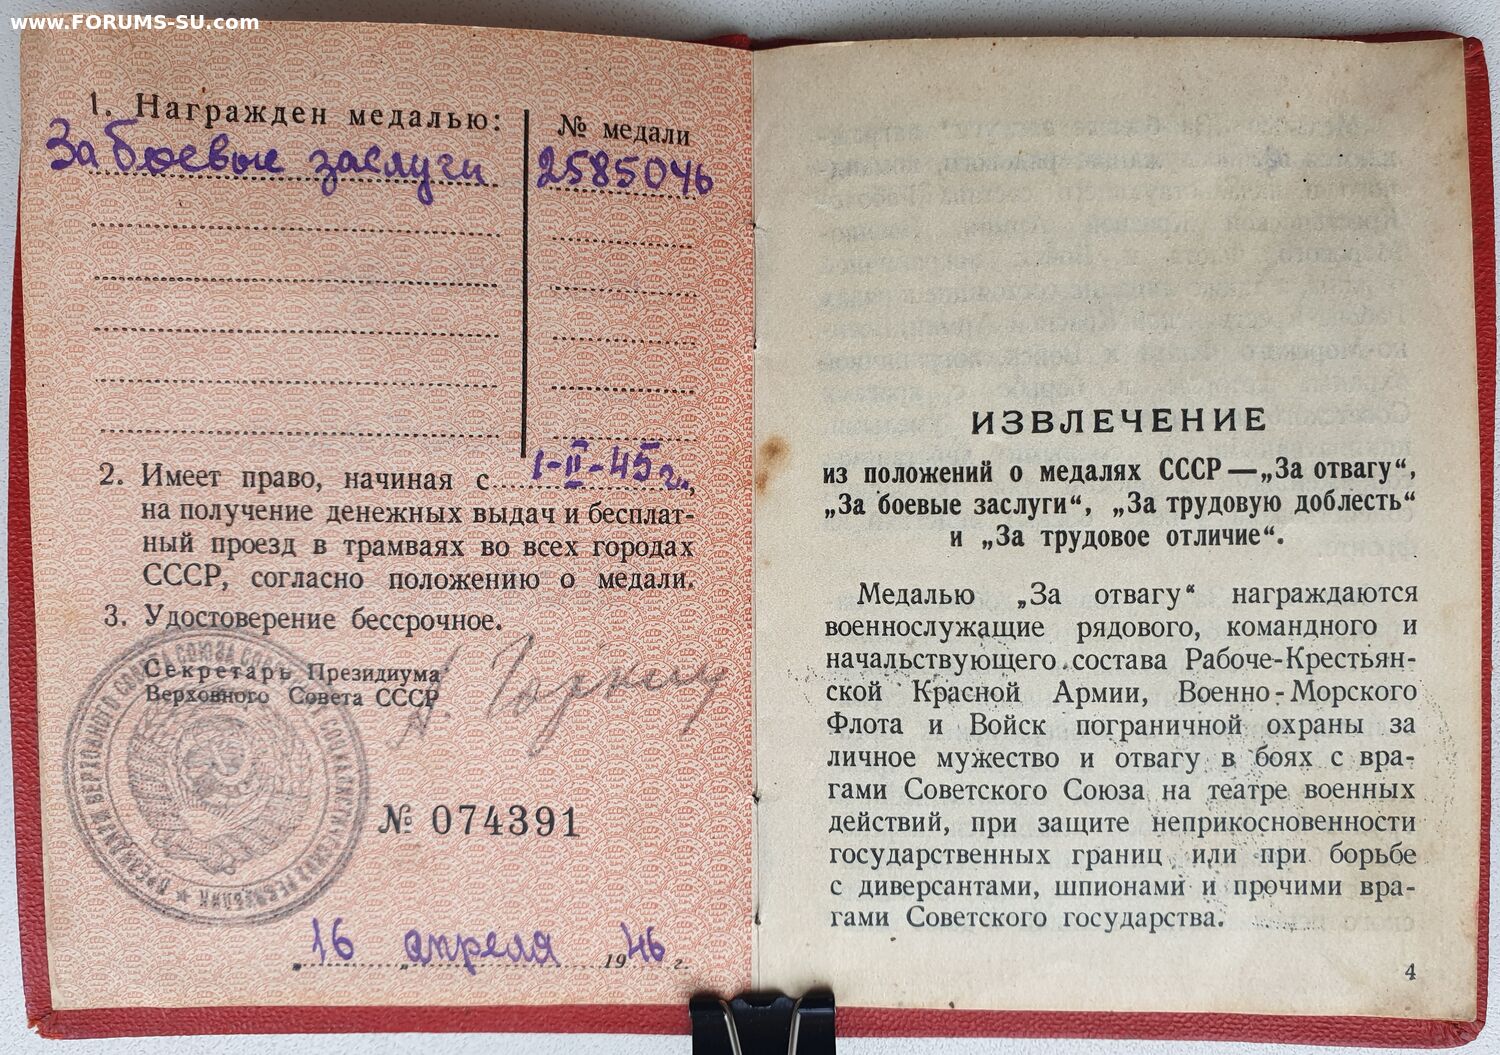 www.FORUMS-SU.com
1. Награжден медалью:
№ медали
За боевые заслуги
2585046
2. Имеет право, начиная с 1-II-45г.,
на получение денежных выдач и бесплат-
ный проезд в трамваях во всех городах
СССР, согласно положению о медали.
3. Удостоверение бессрочное.
Секретарь Президиума
Верховного Совета СССР
№ 074391
„16 „ апреля 1946 г.
ИЗВЛЕЧЕНИЕ
из положений о медалях СССР — „За отвагу“,
„За боевые заслуги“, „За трудовую доблесть“
и „За трудовое отличие“.
Медалью „За отвагу“ награждаются
военнослужащие рядового, командного и
начальствующего состава Рабоче-Крестьян-
ской Красной Армии, Военно-Морского
Флота и Войск пограничной охраны за
личное мужество и отвагу в боях с вра-
гами Советского Союза на театре военных
действий, при защите неприкосновенности
государственных границ или при борьбе
с диверсантами, шпионами и прочими вра-
гами Советского государства.
4